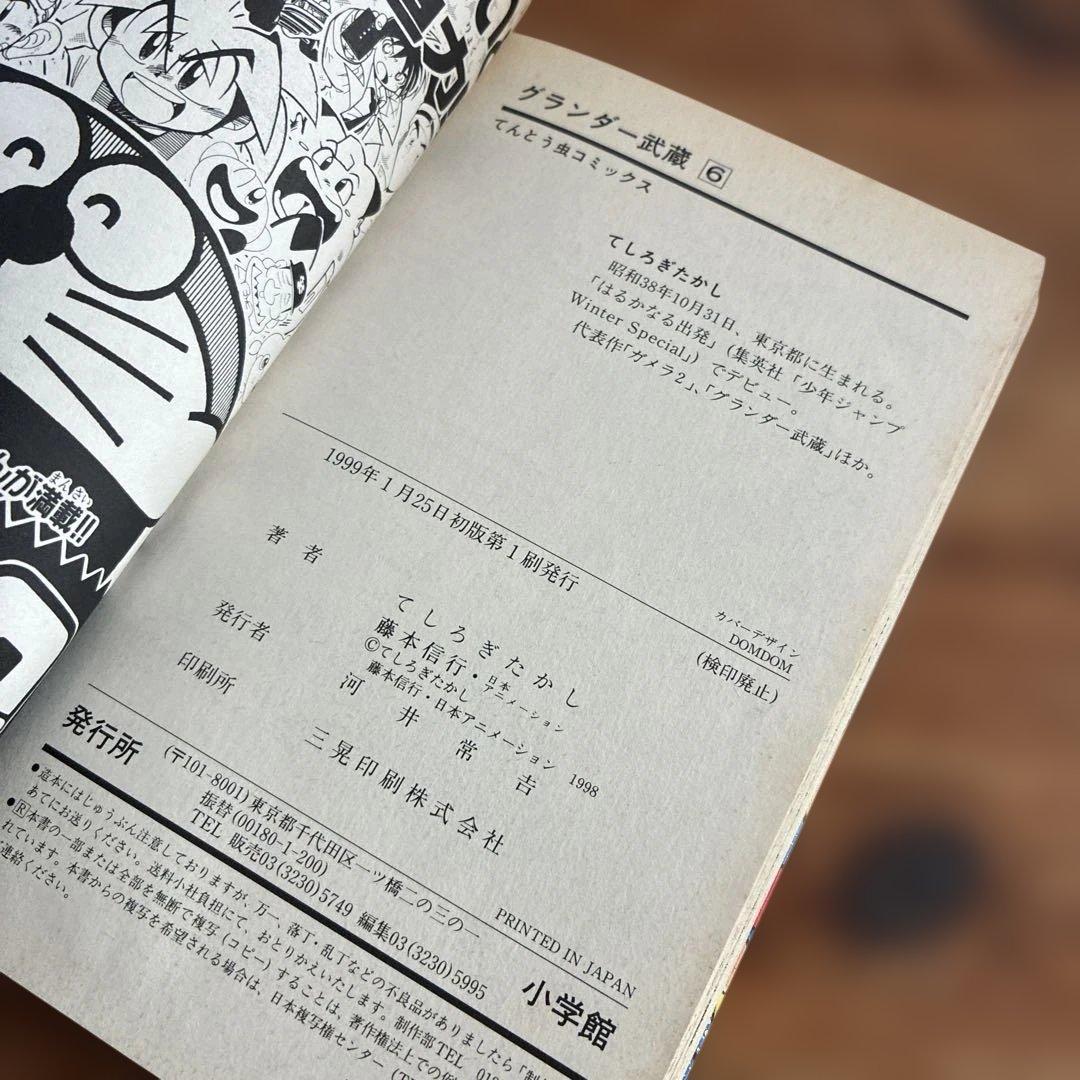 グランダー武蔵 6
てんとう虫コミックス
てしろぎたかし
昭和38年10月31日、東京都に生まれる。
「はるかなる出発」(集英社「少年ジャンプ
Winter Special」)でデビュー。
代表作「ガメラ2」、「グランダー武蔵」ほか。
1999年1月25日初版第1刷発行
カバーデザイン
DOMDOM
(検印廃止)
著者 てしろぎたかし
藤本信行・日本アニメーション
©てしろぎたかし
藤本信行・日本アニメーション 1998
発行者 河井常吉
印刷所 三晃印刷株式会社
PRINTED IN JAPAN
発行所 (〒101-8001)東京都千代田区一ツ橋二の三の一
振替(00180-1-200)
TEL 販売03(3230)5749 編集03(3230)5995
小学館
●造本にはじゅうぶん注意しておりますが、万一、落丁・乱丁などの不良品がありましたら「制
あてにお送りください。送料小社負担にて、おとりかえいたします。制作部TEL
●R本書の一部または全部を無断で複写(コピー)することは、著作権法上での例
れています。本書からの複写を希望される場合は、日本複写権センター
連絡ください。
が満載!!
まんさい